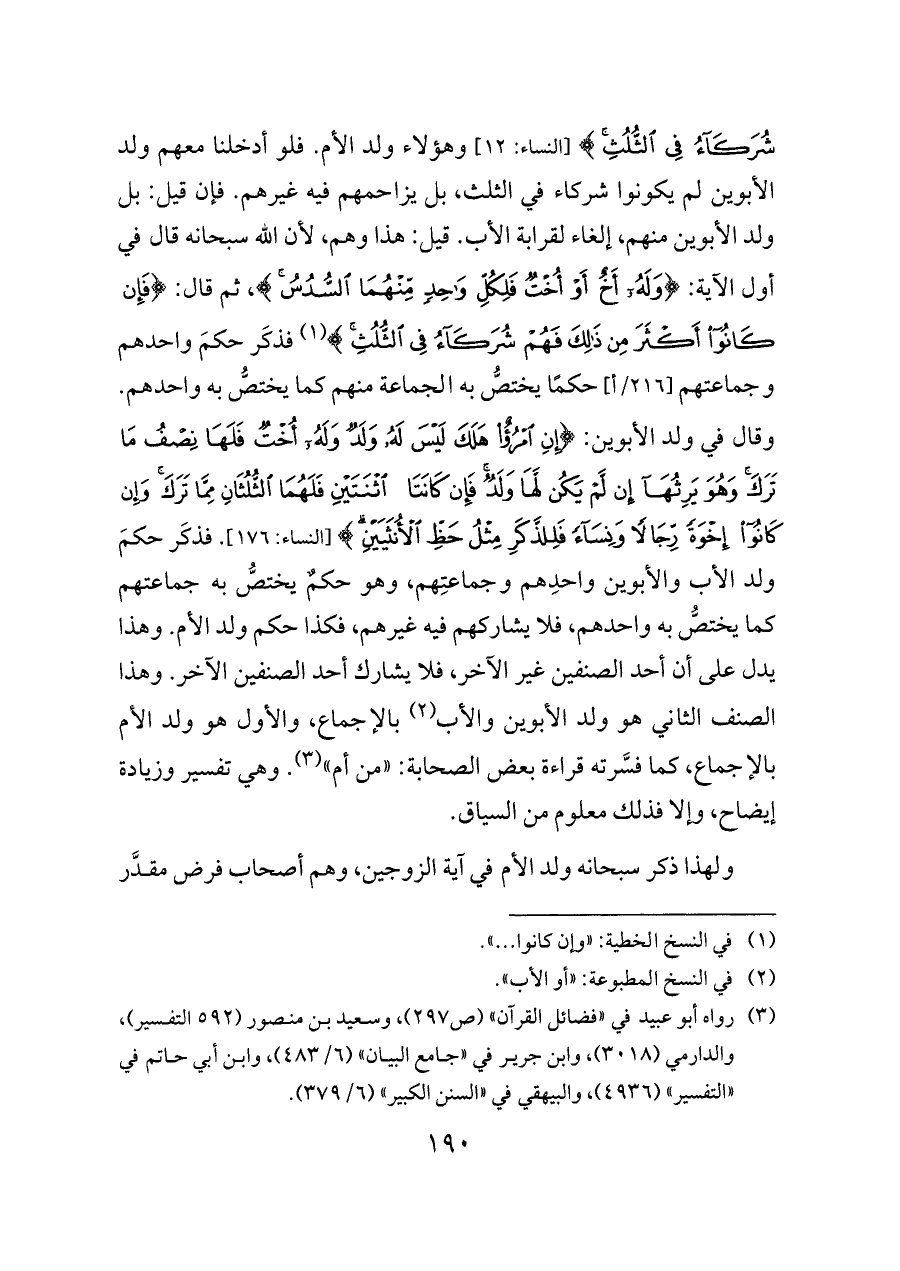 شُرَكَآءُ فِي ٱلثُّلُثِ ۚ﴾ [النساء: ١٢] وهؤلاء ولد الأم. فلو أدخلنا معهم ولد
الأبوين لم يكونوا شركاء في الثلث، بل يزاحمهم فيه غيرهم. فإن قيل: بل
ولد الأبوين منهم، إلغاء لقرابة الأب. قيل: هذا وهم، لأن الله سبحانه قال في
أول الآية: ﴿وَلَهُۥٓ أَخٌ أَوْ أُخْتٌ فَلِكُلِّ وَٰحِدٍ مِّنْهُمَا ٱلسُّدُسُ ۚ﴾، ثم قال: ﴿فَإِن
كَانُوٓا۟ أَكْثَرَ مِن ذَٰلِكَ فَهُمْ شُرَكَآءُ فِي ٱلثُّلُثِ ۚ﴾(١) فذكَر حكمَ واحدهم
وجماعتهم [٢١٦/أ] حكمًا يختصُّ به الجماعة منهم كما يختصُّ به واحدهم.
وقال في ولد الأبوين: ﴿إِنِ ٱمْرُؤٌا۟ هَلَكَ لَيْسَ لَهُۥ وَلَدٌ وَلَهُۥٓ أُخْتٌ فَلَهَا نِصْفُ مَا
تَرَكَ ۚ وَهُوَ يَرِثُهَآ إِن لَّمْ يَكُن لَّهَا وَلَدٌ ۚ فَإِن كَانَتَا ٱثْنَتَيْنِ فَلَهُمَا ٱلثُّلُثَانِ مِمَّا تَرَكَ ۚ وَإِن
كَانُوٓا۟ إِخْوَةً رِّجَالًا وَنِسَآءً فَلِلذَّكَرِ مِثْلُ حَظِّ ٱلْأُنثَيَيْنِ ۗ﴾ [النساء: ١٧٦]. فذكَر حكمَ
ولد الأب والأبوين واحدِهم وجماعتِهم، وهو حكمٌ يختصُّ به جماعتهم
كما يختصُّ به واحدهم، فلا يشاركهم فيه غيرهم، فكذا حكم ولد الأم. وهذا
يدل على أن أحد الصنفين غير الآخر، فلا يشارك أحد الصنفين الآخر. وهذا
الصنف الثاني هو ولد الأبوين والأب(٢) بالإجماع، والأول هو ولد الأم
بالإجماع، كما فسَّرته قراءة بعض الصحابة: «من أم»(٣). وهي تفسير وزيادة
إيضاح، وإلا فذلك معلوم من السياق.
ولهذا ذكر سبحانه ولد الأم في آية الزوجين، وهم أصحاب فرض مقدَّر
(١) في النسخ الخطية: «وإن كانوا...».
(٢) في النسخ المطبوعة: «أو الأب».
(٣) رواه أبو عبيد في «فضائل القرآن» (ص٢٩٧)، وسعيد بن منصور (٥٩٢ التفسير)،
والدارمي (٣٠١٨)، وابن جرير في «جامع البيان» (٦/ ٤٨٣)، وابن أبي حاتم في
«التفسير» (٤٩٣٦)، والبيهقي في «السنن الكبير» (٦/ ٣٧٩).
١٩٠